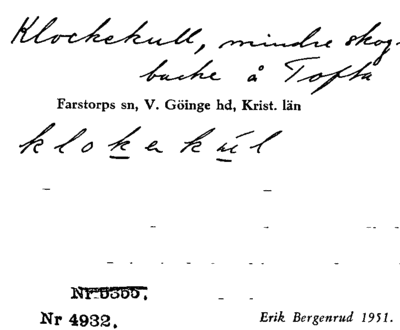 Klockekull, mindre skog-
backe å Tofta
Farstorps sn, V. Göinge hd, Krist. län
Nr 5355.
Nr 4932.
Erik Bergenrud 1951.